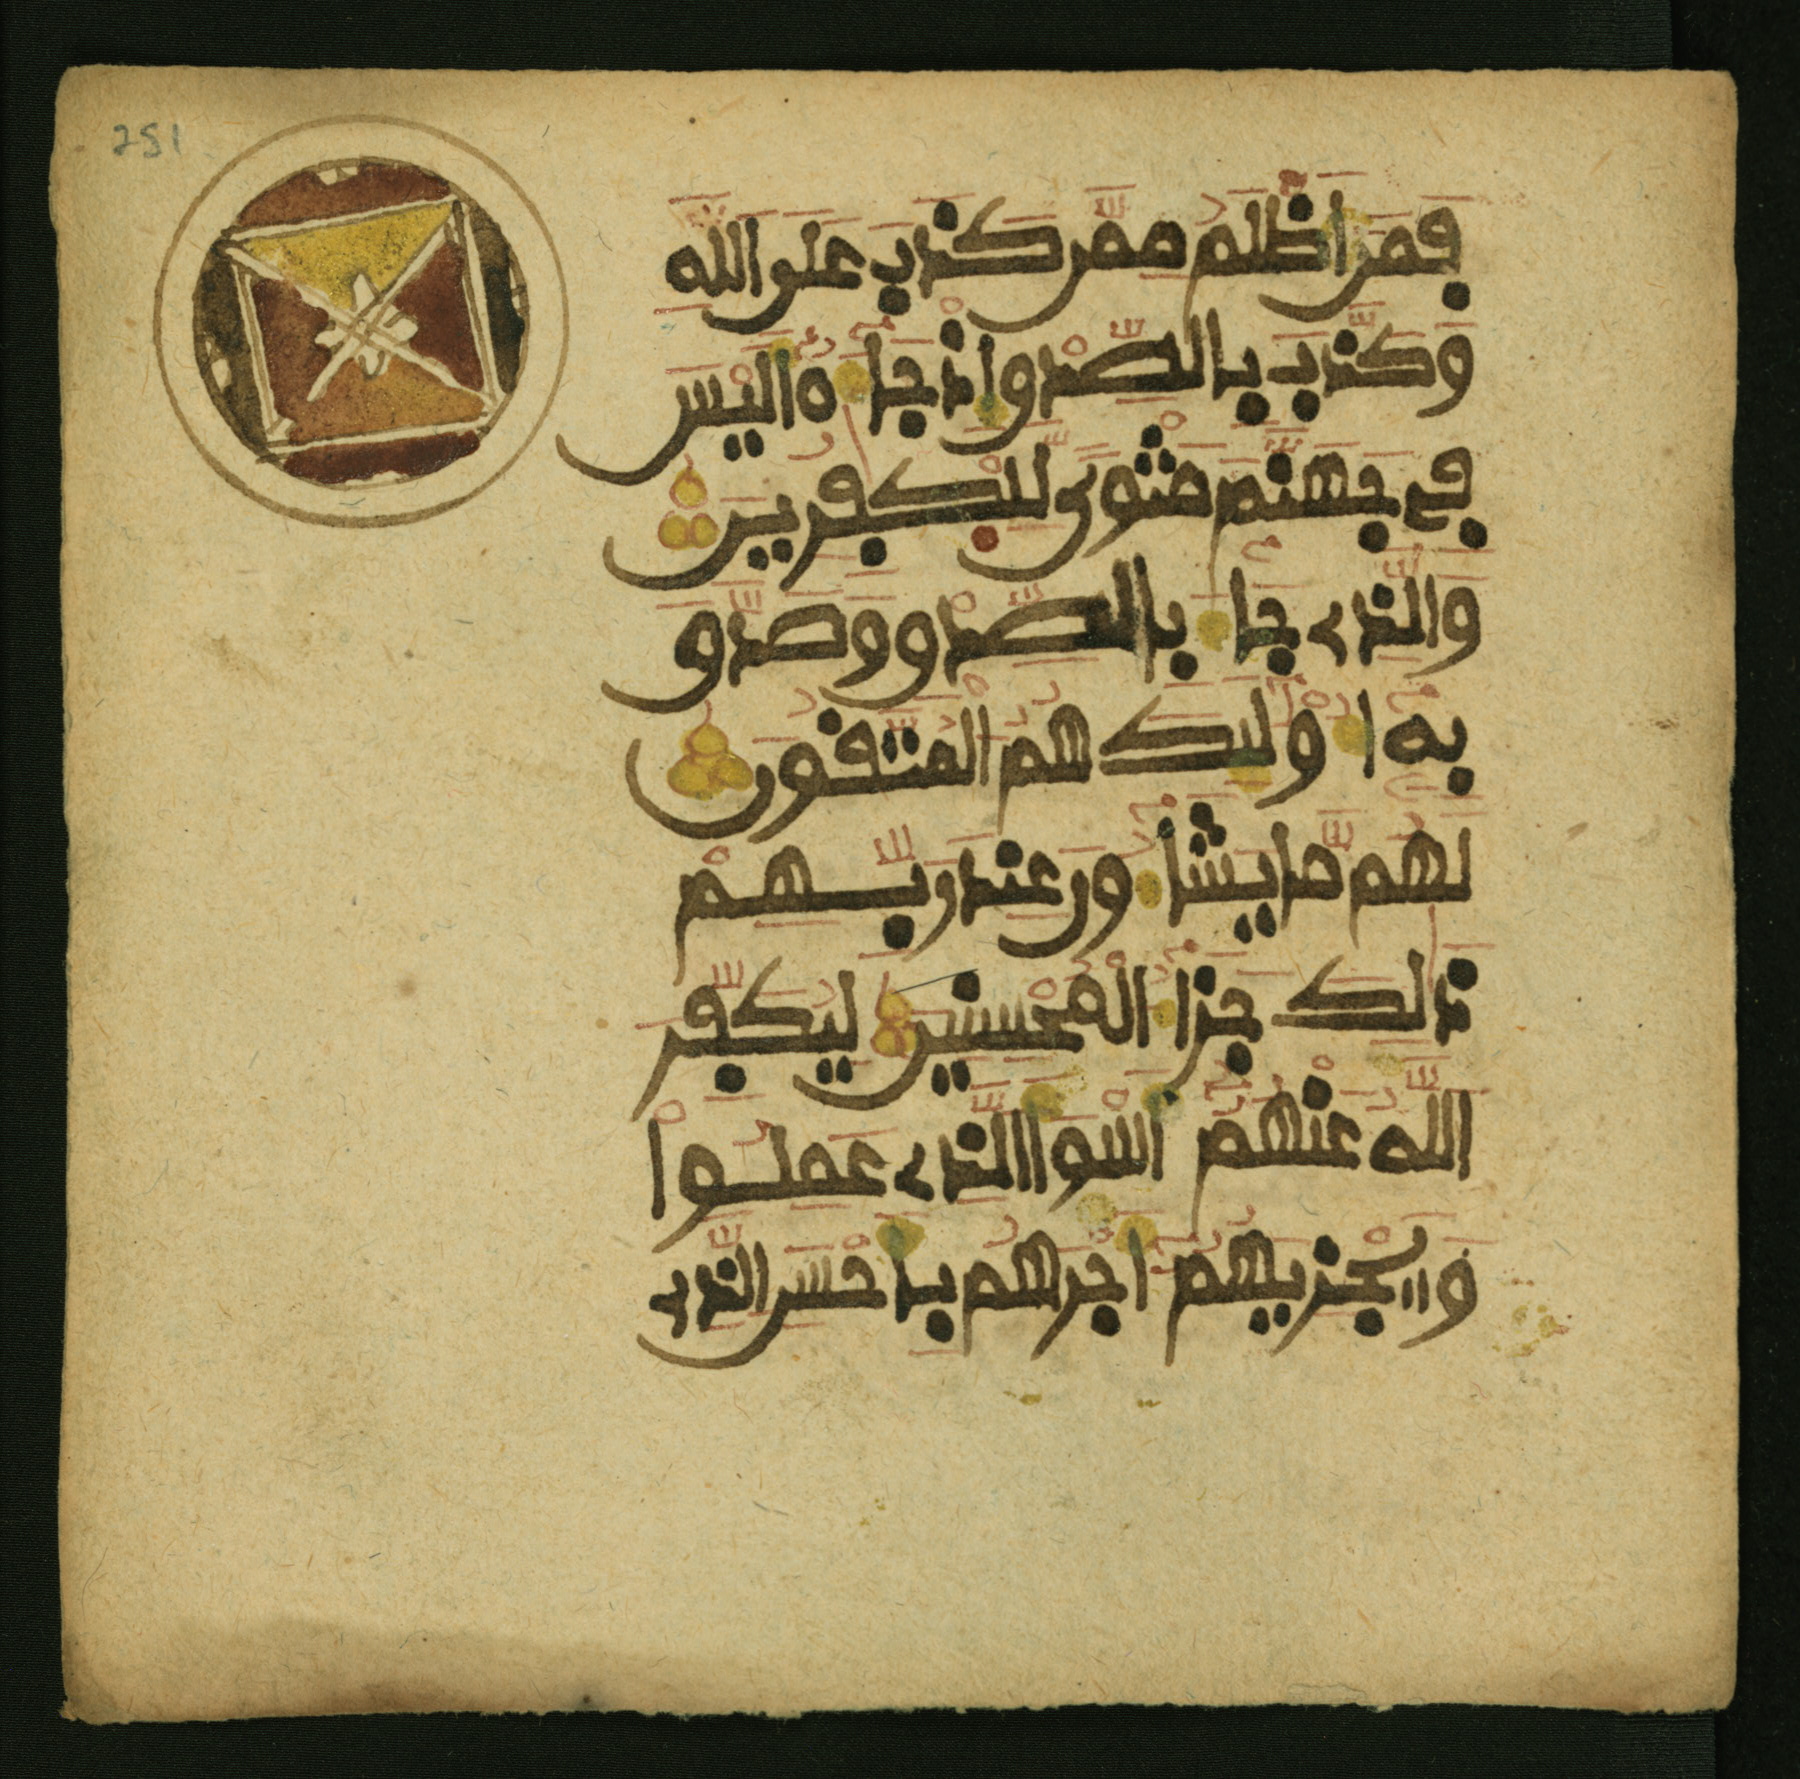 251
فمن اظلم ممن كذب على الله
وكذب بالصدق اذ جاءه اليس
في جهنم مثوى للكفرين
والذى جاء بالصدق وصدق
به اوليك هم المتقون
لهم ما يشاءون عند ربهم
ذلك جزاء المحسنين ليكفر
الله عنهم اسوا الذى عملوا
ويجزيهم اجرهم باحسن الذى